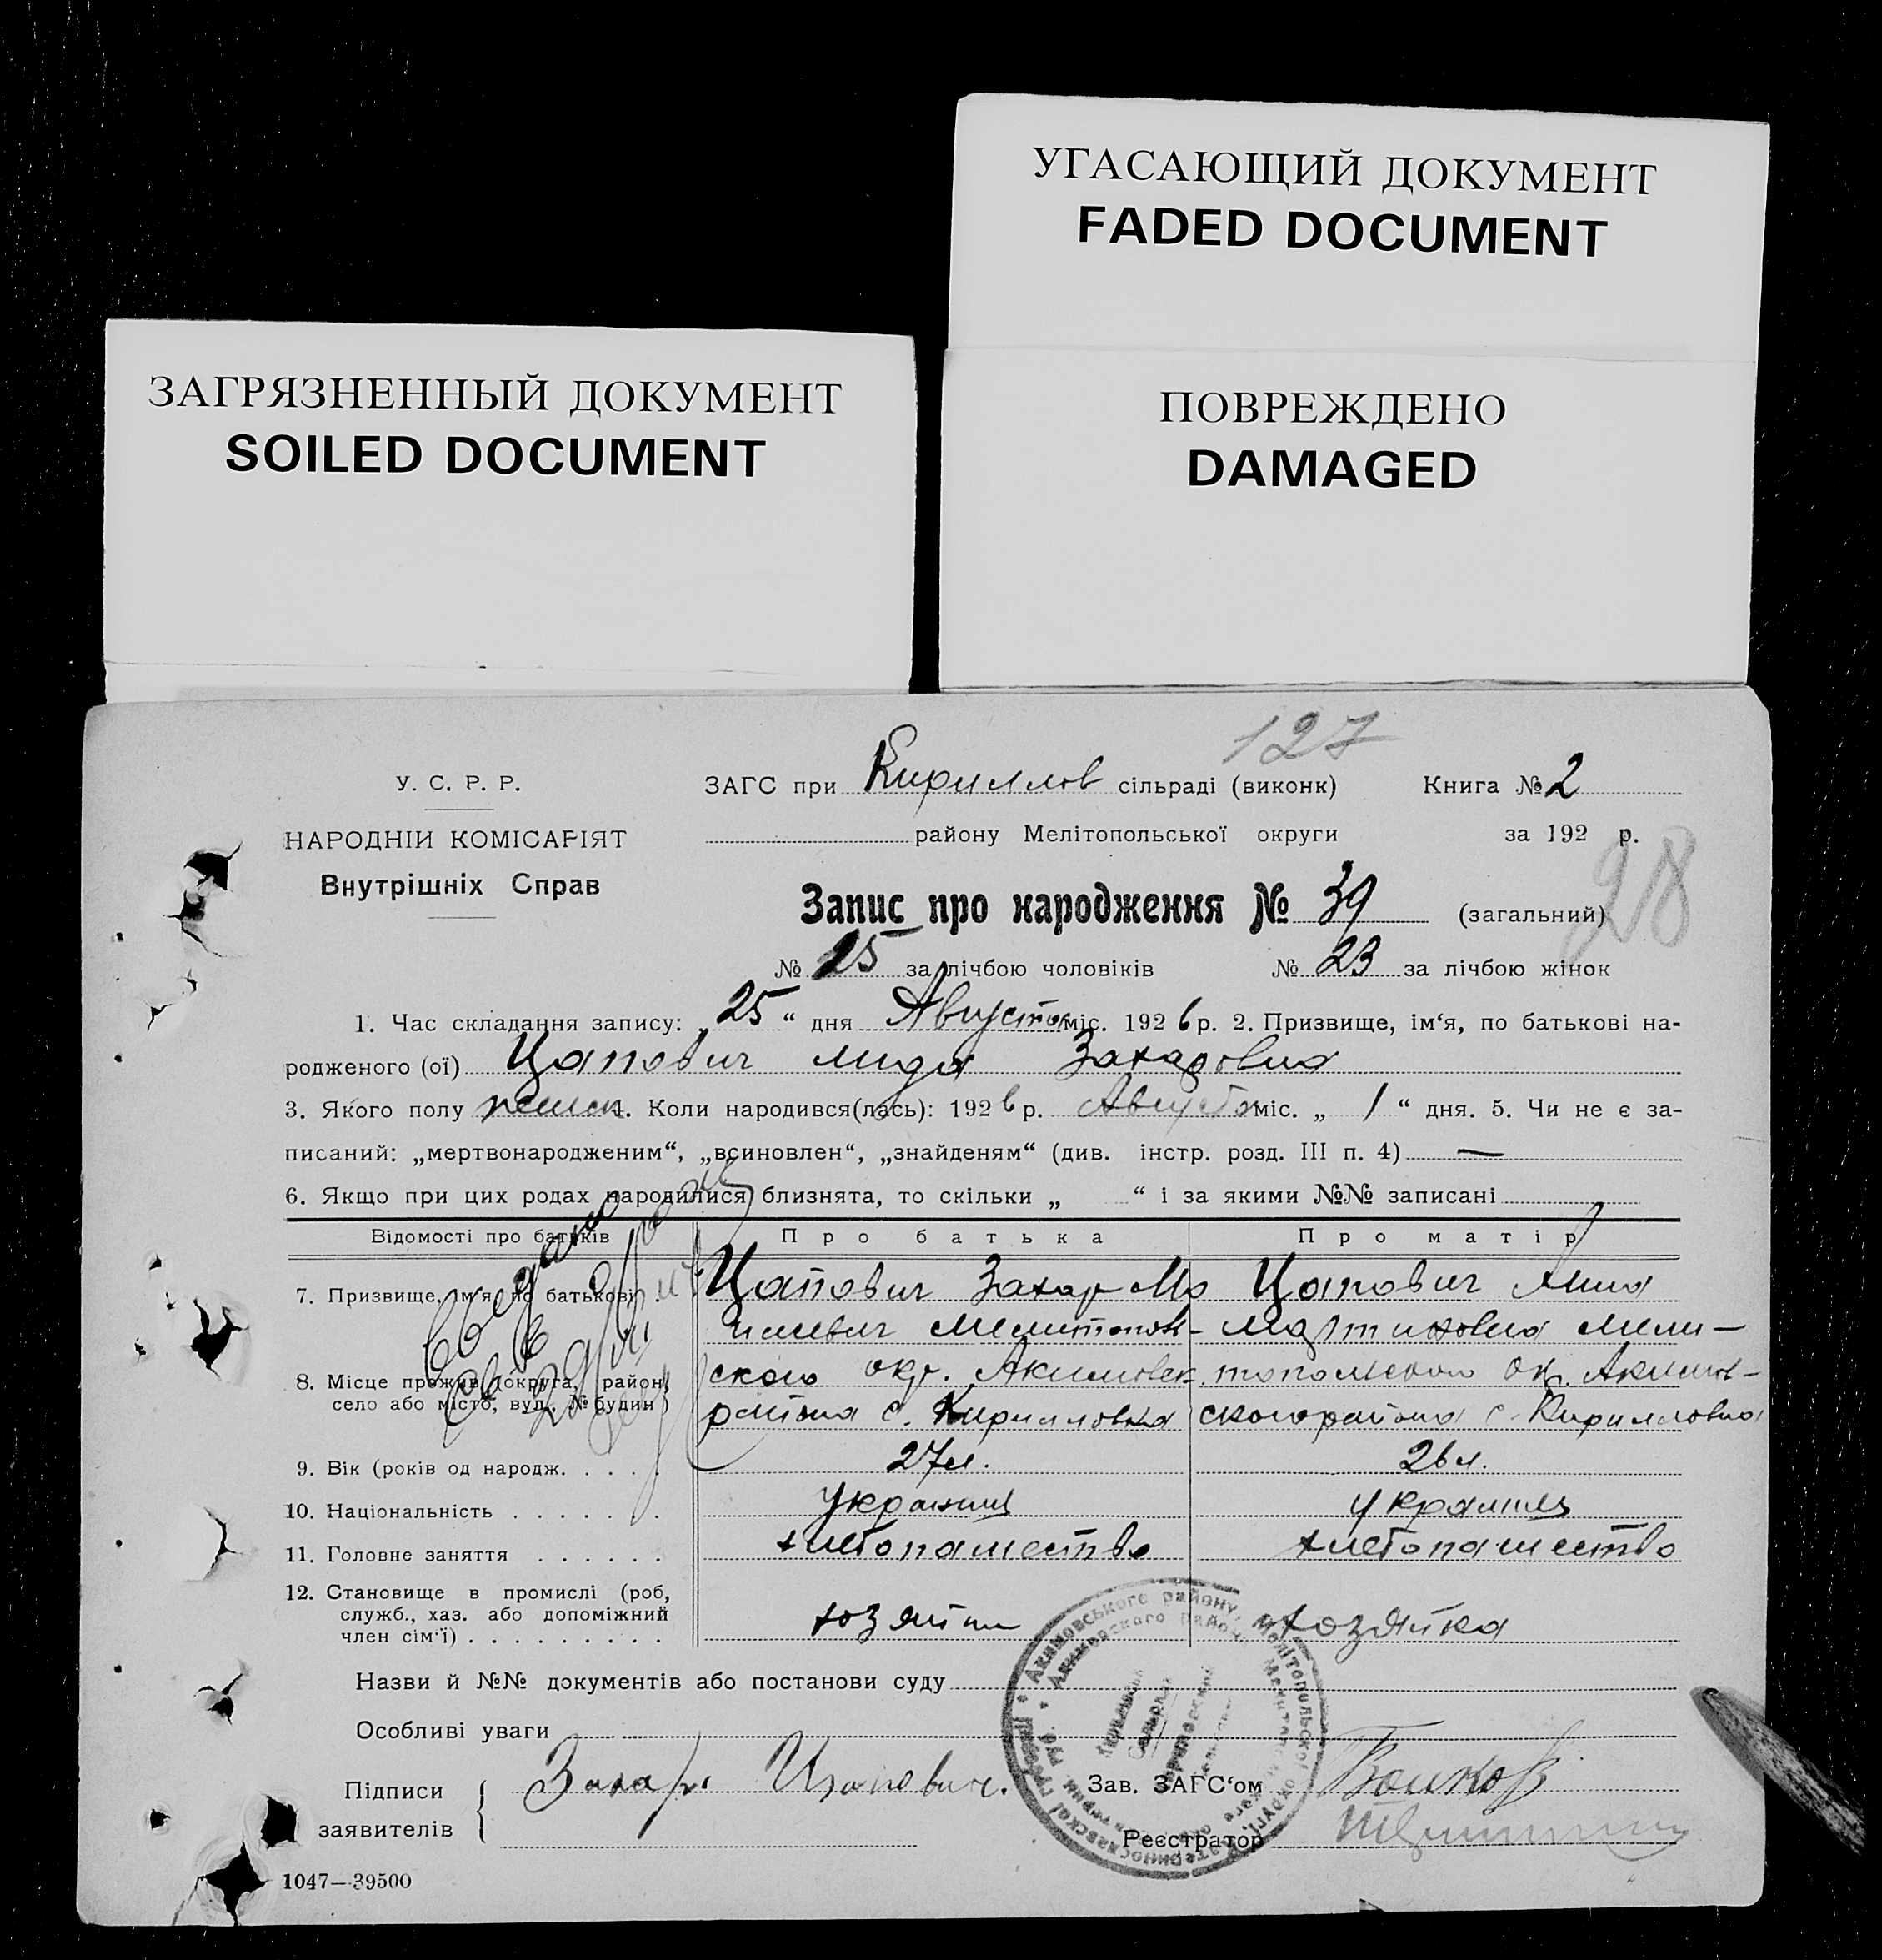 УГАСАЮЩИЙ ДОКУМЕНТ
FADED DOCUMENT
ЗАГРЯЗНЕННЫЙ ДОКУМЕНТ
SOILED DOCUMENT
ПОВРЕЖДЕНО
DAMAGED
127
У. С. Р. Р.
ЗАГС при Кириллов сільраді (виконк) Книга № 2
НАРОДНІЙ КОМІСАРІЯТ
району Мелітопольської округи за 192 р.
Внутрішніх Справ
28
Запис про народження № 39 (загальний)
№ 25 за лічбою чоловіків № 23 за лічбою жінок
1. Час складання запису: „25“ дня Августа міс. 1926 р. 2. Призвище, ім‘я, по батькові на-
родженого (ої) Цапович Лида Захаровна
3. Якого полу женск. Коли народився(лась): 1926 р. Августа міс. „ 1 “ дня. 5. Чи не є за-
писаний: „мертвонародженим“, „всиновлен“, „знайденям“ (див. інстр. розд. III п. 4) —
6. Якщо при цих родах народилися близнята, то скільки „ “ і за якими №№ записані
Відомості про батьків Про батька Про матір
7. Призвище, ім‘я, по батькові Цапович Захар Цапович Анна
Мартиновна Мели-
8. Місце прожив. (округа, район, ского окр. Акимовск. топольского ок. Акимов-
село або місто, вул., № будин.) района с. Кирилловка ского района с. Кирилловка
9. Вік (років од народж. . . . . 27 л. 26 л.
10. Національність . . . . . . . украинец украинец
11. Головне заняття . . . . . . хлебопашество хлебопашество
12. Становище в промислі (роб,
служб., хаз. або допоміжний хозяин хозяйка
член сім‘ї) . . . . . . . . .
Назви й №№ документів або постанови суду
Особливі уваги
Підписи Захар Цапович. Зав. ЗАГС‘ом
заявителів Реєстратор
1047—39500